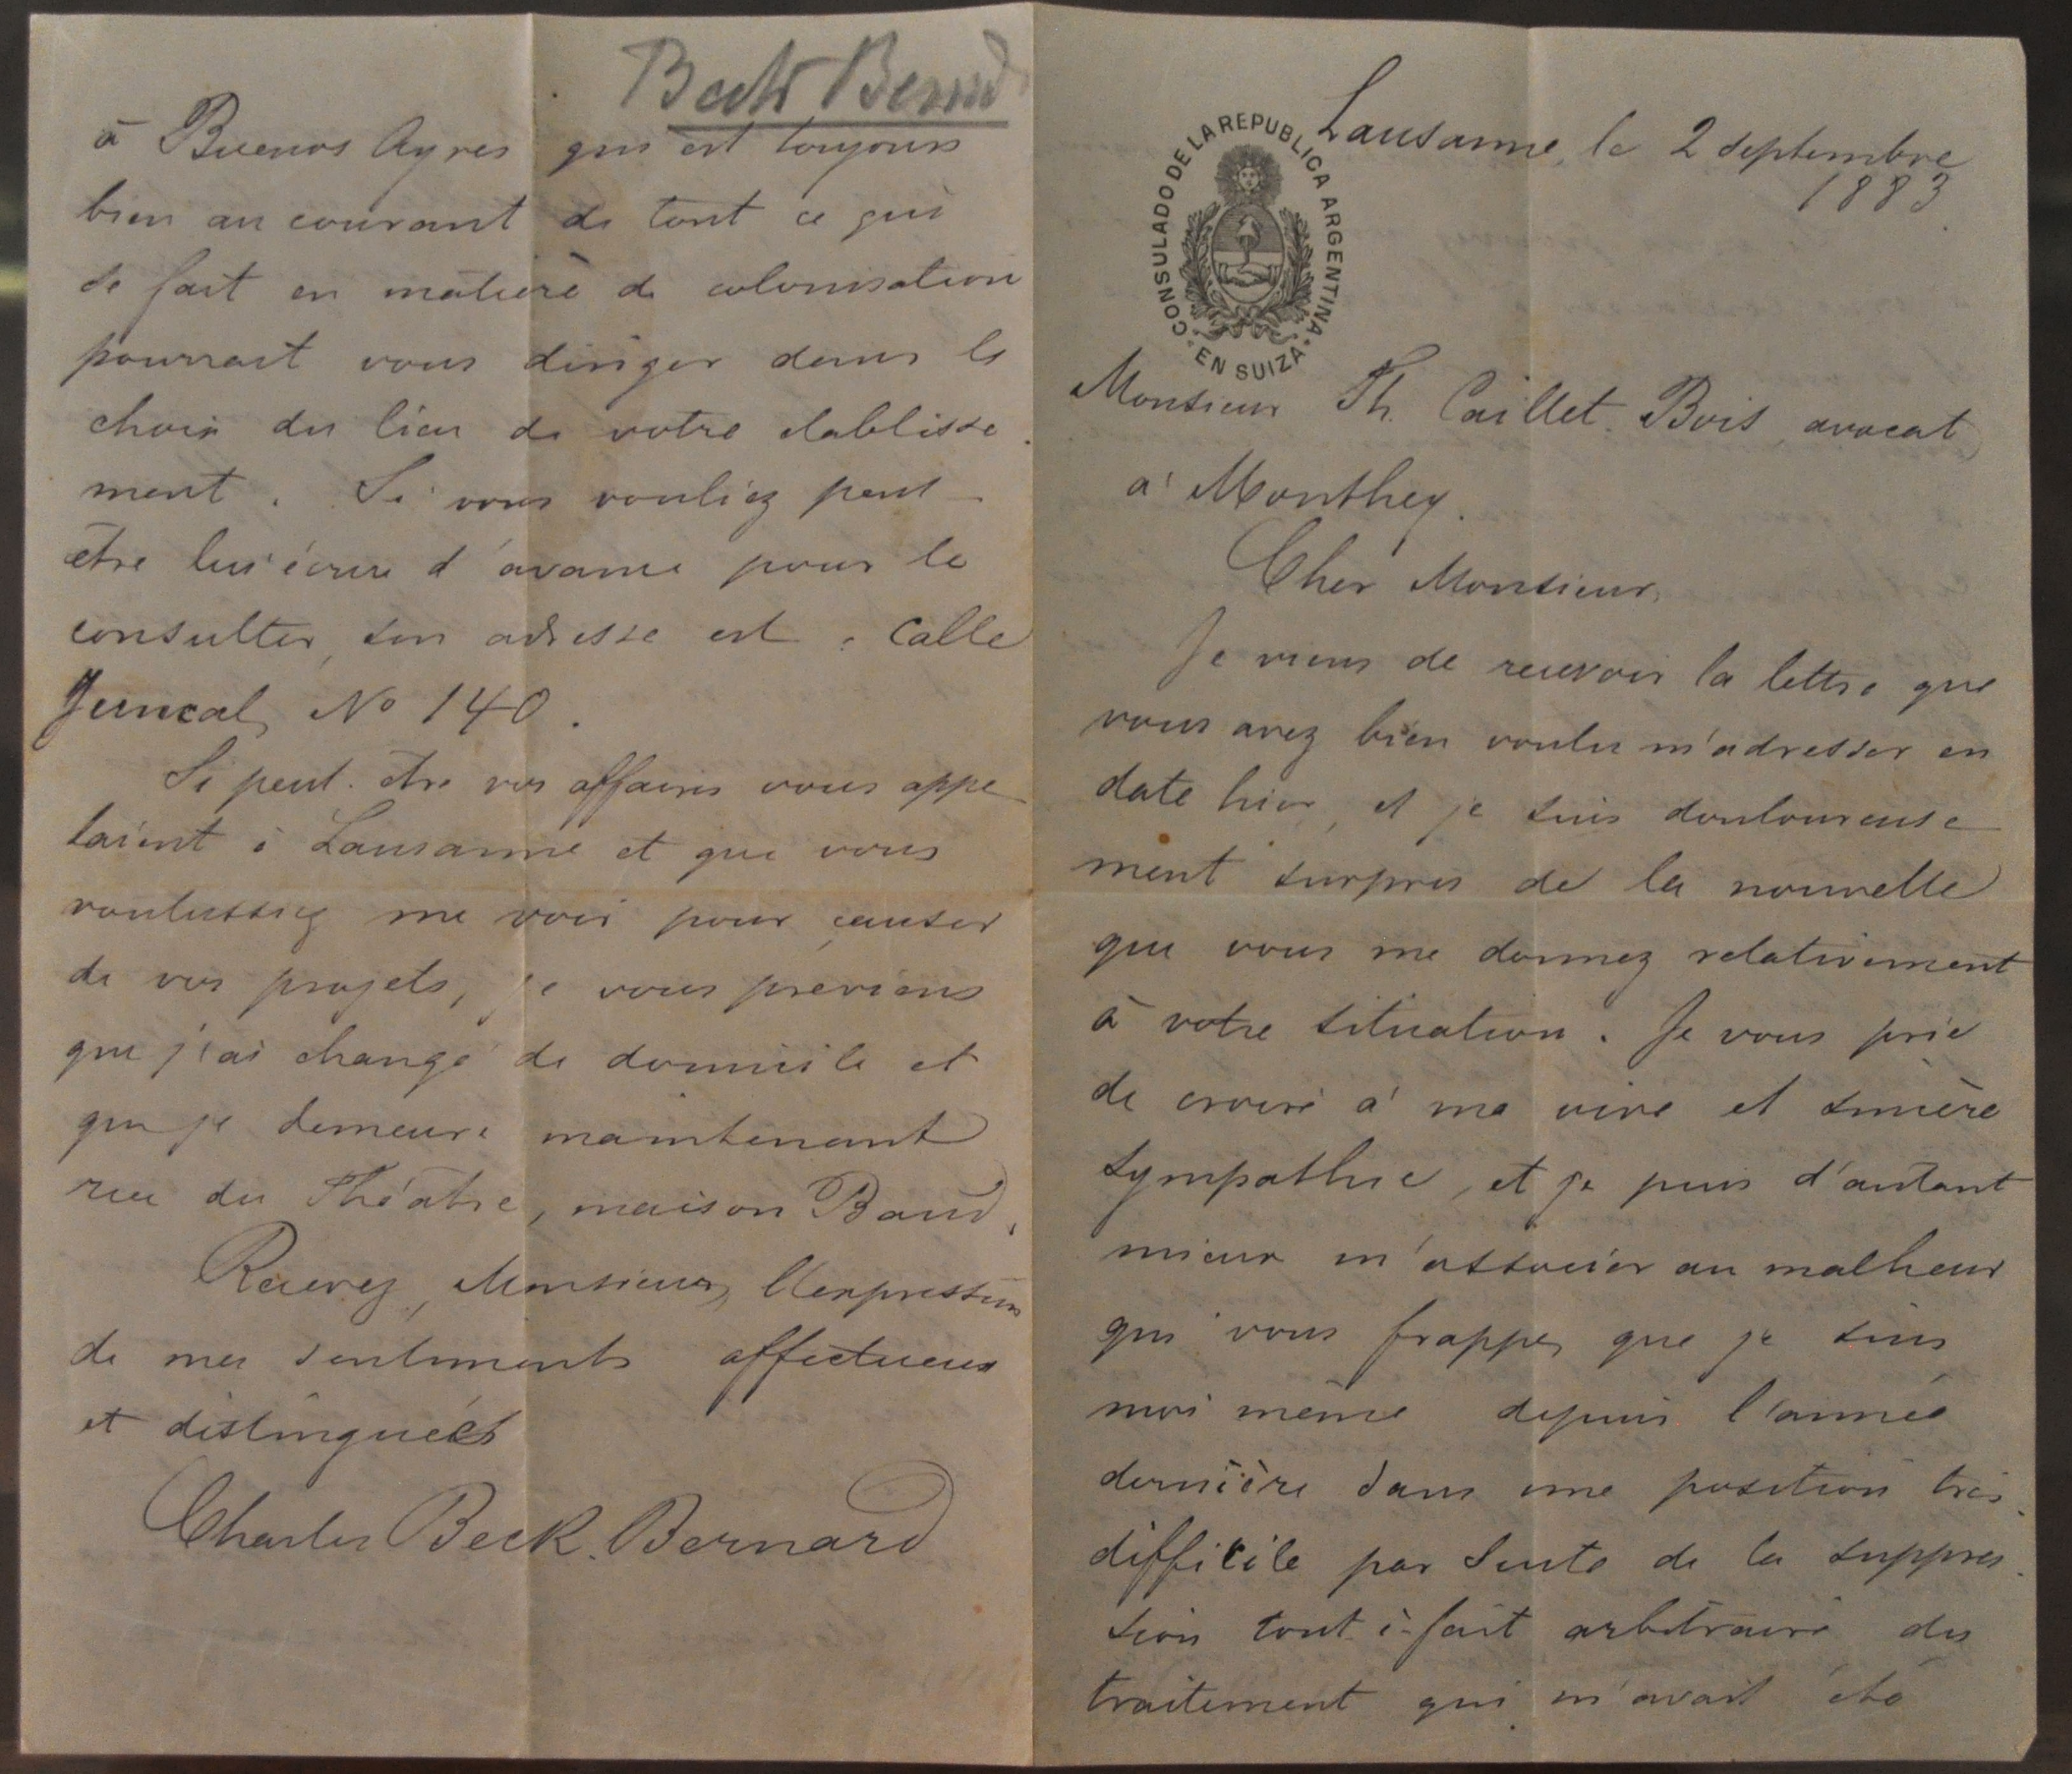 Lausanne, le 2 septembre
1883
CONSULADO DE LA REPUBLICA ARGENTINA
EN SUIZA
Monsieur Th. Caillet-Bois avocat
à Monthey.
Cher Monsieur,
Je viens de recevoir la lettre que
vous avez bien voulu m'adresser en
date hier, et je suis douloureuse
ment surpris de la nouvelle
que vous me donnez relativement
à votre situation. Je vous prie
de croire à ma vive et sincère
sympathie, et je puis d'autant
mieux m'associer au malheur
qui vous frappe, que je suis
moi même depuis l'année
dernière dans une position très
difficile par suite de la suppres
sion tout-à-fait arbitraire du
traitement qui m'avait été
Beck Bernard
à Buenos Ayres qui est toujours
bien au courant de tout ce qui
se fait en matière de colonisation
pourrait vous diriger dans le
choix du lieu de votre établisse-
ment. Si vous vouliez peut-
être lui écrire d'avance pour le
consulter, son adresse est: Calle
Juncal, No 140.
Si peut-être vos affaires vous appe
laient à Lausanne et que vous
voulussiez me voir pour causer
de vos projets, je vous préviens
que j'ai changé de domicile et
que je demeure maintenant
rue du Théâtre, maison Baud.
Recevez, Monsieur, l'expression
de mes sentiments affectueux
et distingués
Charles Beck-Bernard